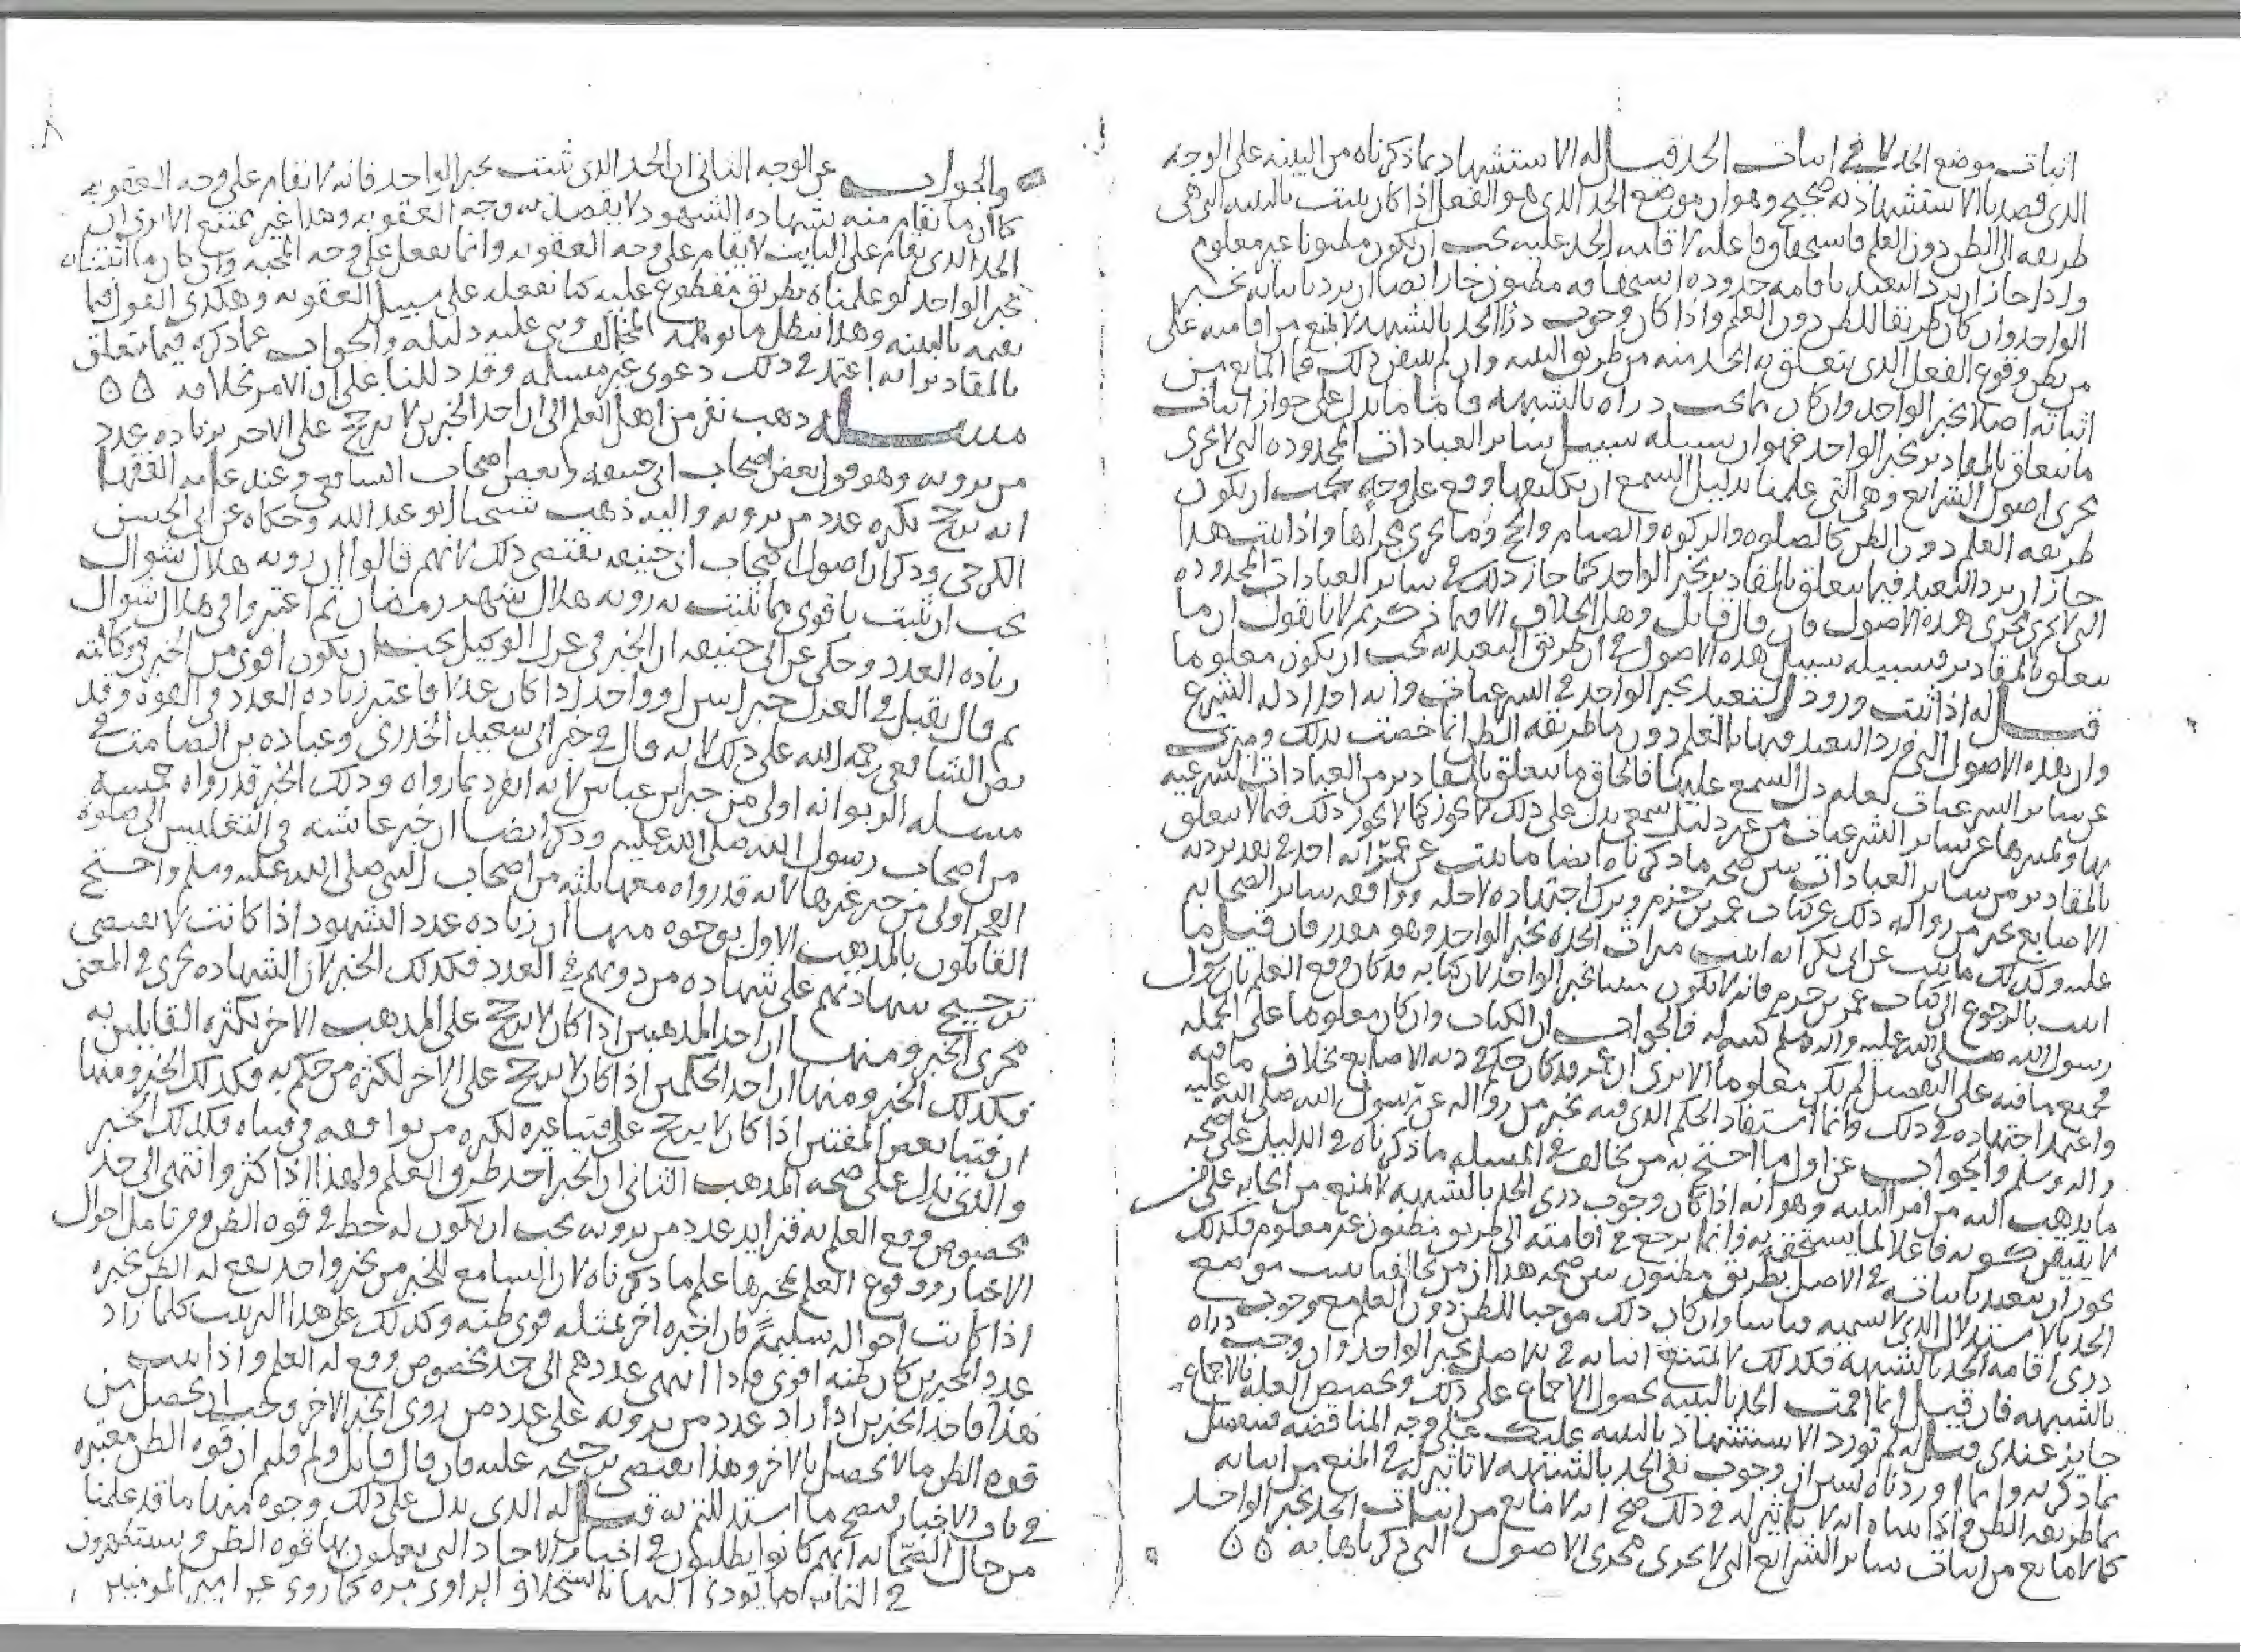 اثبات موضع الحد لا في اثبات الحد قيل له الاستشهاد بما ذكرناه من البينه على الوجه
الذي قصدنا الاستشهاد به صحيح وهو ان موضع الحد الذي هو الفعل اذا كان يثبت بالبينه التي هي
طريقه الى الظن دون العلم فاستحقاق فاعله لاقامه الحد عليه يجب ان يكون مظنونا غير معلوم
واذا جاز ان يرد التعبد باقامه حدوده استحقاقه مظنون جاز ايضا ان يرد باثباته بخبر
الواحد وان كان طريقا للظن دون العلم واذا كان وجوب درا الحد بالشبهه لا يمنع من اقامته على
من يظن وقوع الفعل الذي يتعلق به الحد منه من طريق البينه وان لم يتيقن ذلك فما المانع من
اثباته اصلا بخبر الواحد وان كان مما يجب دراه بالشبهه فاما ما يدل على جواز اثبات
ما يتعلق بالمقادير بخبر الواحد فهو ان سبيله سبيل سائر العبادات المحدوده التي لا تجري
مجرى اصول الشرايع وهي التي علمنا بدليل السمع ان تكليفها وقع على وجه يجب ان يكون
طريقه العلم دون الظن كالصلوه والزكوه والصيام والحج وما يجري مجراها واذا ثبت هذا
جاز ان يرد التعبد فيما يتعلق بالمقادير بخبر الواحد كما جاز ذلك في سائر العبادات المحدوده
التي لا تجري مجرى هذه الاصول فان قال قائل وهل الخلاف الا فيما ذكرتم لانا نقول ان ما
يتعلق بالمقادير فسبيله سبيل هذه الاصول في ان طريق التعبد به يجب ان يكون معلوما
قيل له اذا ثبت ورود التعبد بخبر الواحد في الشرعيات وانه احد ادله الشرع
وان هذه الاصول التي ورد التعبد فيها بالعلم دون ما طريقه الظن انما خصت بذلك وميزت
عن سائر الشرعيات لعلم دل السمع عليها فالحاق ما يتعلق بالمقادير من العبادات الشرعيه
بها وتمييزها عن سائر الشرعيات من غير دليل سمعي يدل على ذلك لا يجوز كما لا يجوز ذلك فيما لا يتعلق
بالمقادير من سائر العبادات يبين صحه ما ذكرناه ايضا ما ثبت عن عمر انه اخذ في تقدير ديه
الاصابع بخبر من روى له ذلك عن كتاب عمرو بن حزم وترك اجتهاده لاجله ووافقه سائر الصحابه
عليه وكذلك ما ثبت عن ابي بكر انه اثبت ميراث الجده بخبر الواحد وهو مقدر فان قيل ما
اثبت بالرجوع الى كتاب عمرو بن حزم فانه لا يكون مثبتا بخبر الواحد لان كتابه قد كان وقع العلم بان رسول
رسول الله صلى الله عليه واله وسلم كتبه له فالجواب ان الكتاب وان كان معلوما على الجمله
فجميع ما فيه على التفصيل لم يكن معلوما الا ترى ان عمر قد كان حكم في ديه الاصابع بخلاف ما فيه
واعتمد اجتهاده في ذلك وانما استفاد الحكم الذي فيه بخبر من رواه له عن رسول الله صلى الله عليه
واله وسلم والجواب عن اول ما احتج به من يخالف في المسله ما ذكرناه في الدليل على صحه
ما يذهب اليه من امر البينه وهو انه اذا كان وجوب درى الحد بالشبهه لا يمنع من ايجابه على من
لا يتيقن كونه فاعلا لما يستحقه به وانما يرجع في اقامته الى طريق مظنون غير معلوم فكذلك
يجوز ان يتعبد باثباته في الاصل بطريق مظنون يبين صحه هذا ان من يخالفنا يثبت موضع
الحد بالاستدلال الذي لا نسميه قياسا وان كان ذلك موجبا للظن دون العلم مع وجوب
درى اقامه الحد بالشبهه فكذلك لا يمتنع اثباته في الاصل بخبر الواحد وان وجب دراه
بالشبهه فان قيل انما اقمت الحد بالبينه بحصول الاجماع على ذلك وتخصيص العله بالاجماع
جايز عندي قيل له لم نورد الاستشهاد بالبينه عليك على وجه المناقضه فتنفصل
بما ذكرته وانما اوردناه لنبين ان وجوب نفي الحد بالشبهه لا تاثير له في المنع من اثباته
بما طريقه الظن واذا بيناه انه لا تاثير له في ذلك صح انه لا مانع من اثبات الحد بخبر الواحد
كما لا مانع من اثبات سائر الشرايع التي لا تجري مجرى الاصول التي ذكرناها به ٥ ٥
٨
والجواب عن الوجه الثاني ان الحد الذي ثبت بخبر الواحد فانه لا يقام على وجه العقوبه
كما ان ما يقام منه بشهاده الشهود لا يقصد به وجه العقوبه وهذا غير ممتنع الا ترى ان
الحد الذي يقام على التايب لا يقام على وجه العقوبه وانما يفعل على وجه المحنه وان كان ما اثبتناه
بخبر الواحد لو علمناه بطريق مقطوع عليه كنا نفعله على سبيل العقوبه وهكذى القول فيما
نقيمه بالبينه وهذا يبطل ما توهمه المخالف وبنى عليه دليله والجواب عما ذكره فيما يتعلق
بالمقادير انه اعتمد في ذلك دعوى غير مسلمه وقد دللنا على ان الامر بخلافه ٥ ٥
مسله ذهب نفر من اهل العلم الى ان احد الخبرين لا يرجح على الاخر بزياده عدد
من يرويه وهو قول بعض اصحاب ابي حنيفه وبعض اصحاب الشافعي وعند عامه الفقها
انه يرجح بكثره عدد من يرويه واليه ذهب شيخنا ابو عبد الله وحكاه عن ابي الحسن
الكرخي وذكر ان اصول اصحاب ابي حنيفه تقتضي ذلك لانهم قالوا ان رويه هلال شوال
يجب ان تثبت باقوى مما تثبت به رويه هلال شهر رمضان ثم اعتبروا في هلال شوال
زياده العدد وحكى عن ابي حنيفه ان الخبر في عزل الوكيل يجب ان يكون اقوى من الخبر في وكالته
ثم قال يقبل في العزل خبر اثنين او واحد اذا كان عدلا فاعتبر زياده العدد في القوه وقد
نص الشافعي رحمه الله على ذلك لانه قال في خبر ابي سعيد الخدري وعباده بن الصامت في
مسله الربوا انه اولى من خبر ابن عباس لانه انفرد بما رواه وذلك الخبر قد رواه خمسه
من اصحاب رسول الله صلى الله عليه وذكر ايضا ان خبر عائشه في التغليس الى صلوه
الفجر اولى من خبر غيرها لانه قد رواه معها ثلثه من اصحاب النبي صلى الله عليه وسلم واحتج
القائلون بالمذهب الاول بوجوه منها ان زياده عدد الشهود اذا كانت لا تقتضي
ترجيح شهادتهم على شهاده من دونهم في العدد فكذلك الخبر لان الشهاده تجري في المعنى
مجرى الخبر ومنها ان احد المذهبين اذا كان لا يرجح على المذهب الاخر بكثره القايلين به
فكذلك الخبر ومنها ان احد الحكمين اذا كان لا يرجح على الاخر لكثره من حكم به فكذلك الخبر ومنها
ان فتيا بعض المفتين اذا كان لا يرجح على فتيا غيره لكثره من يوافقه في فتياه فكذلك الخبر
والذي يدل على صحه المذهب الثاني ان الخبر احد طرق العلم ولهذا اذا كثر وانتهى الى حد
مخصوص وقع العلم به فتزايد عدد من يرويه يجب ان يكون له حظ في قوه الظن ومن تامل احوال
الاخبار ووقوع العلم بمخبرها علم ما ذكرناه لان السامع للخبر من مخبر واحد يقع له الظن بخبره
اذا كانت احواله سليمة فان اخبره اخر بمثله قوى ظنه وكذلك على هذا الترتيب كلما زاد
عدد المخبرين كان ظنه اقوى فاذا انتهى عددهم الى حد مخصوص وقع له العلم واذا ثبت
هذا فاحد الخبرين اذا زاد عدد من يرويه على عدد من روى الخبر الاخر وجب ان يحصل من
قوه الظن ما لا يحصل بالاخر وهذا يقتضي ترجيحه عليه فان قال قائل ولم قلتم ان قوه الظن معتبره
في باب الاخبار فيصح ما استدللتم به قيل له الذي يدل على ذلك وجوه منها ما قد علمنا
من حال الصحابه انهم كانوا يطلبون في اخبار الاحاد التي يعملون بها قوه الظن ويستظهرون
في الثاني ما يودي اليها باستحلاف الراوي مره كما روي عن امير المومنين